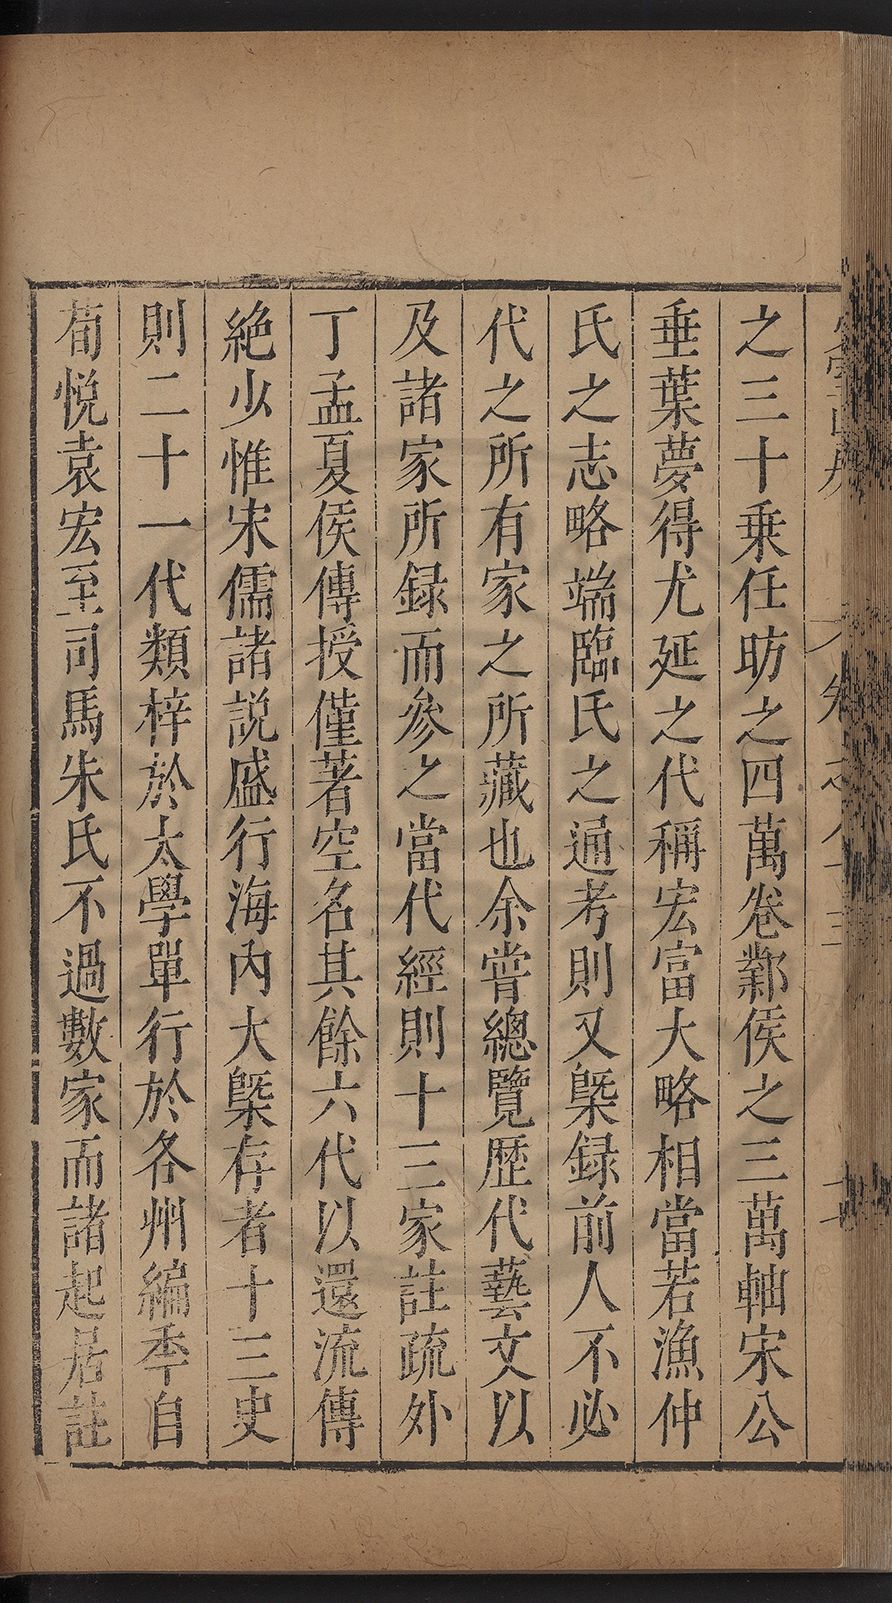 之三十乗任昉之四萬卷鄴侯之三萬軸宋公
垂葉夢得尤延之代稱宏富大略相當若漁仲
氏之志略端臨氏之通考則又槩録前人不必
代之所有家之所藏也余嘗總覽歷代藝文以
及諸家所録而參之當代經則十三家註疏外
丁孟夏侯傳授僅著空名其餘六代以還流傳
絶少惟宋儒諸説盛行海内大槩存者十三史
則二十一代類梓於太學單行於各州編秊自
荀悅袁宏至司馬朱氏不過數家而諸起居註